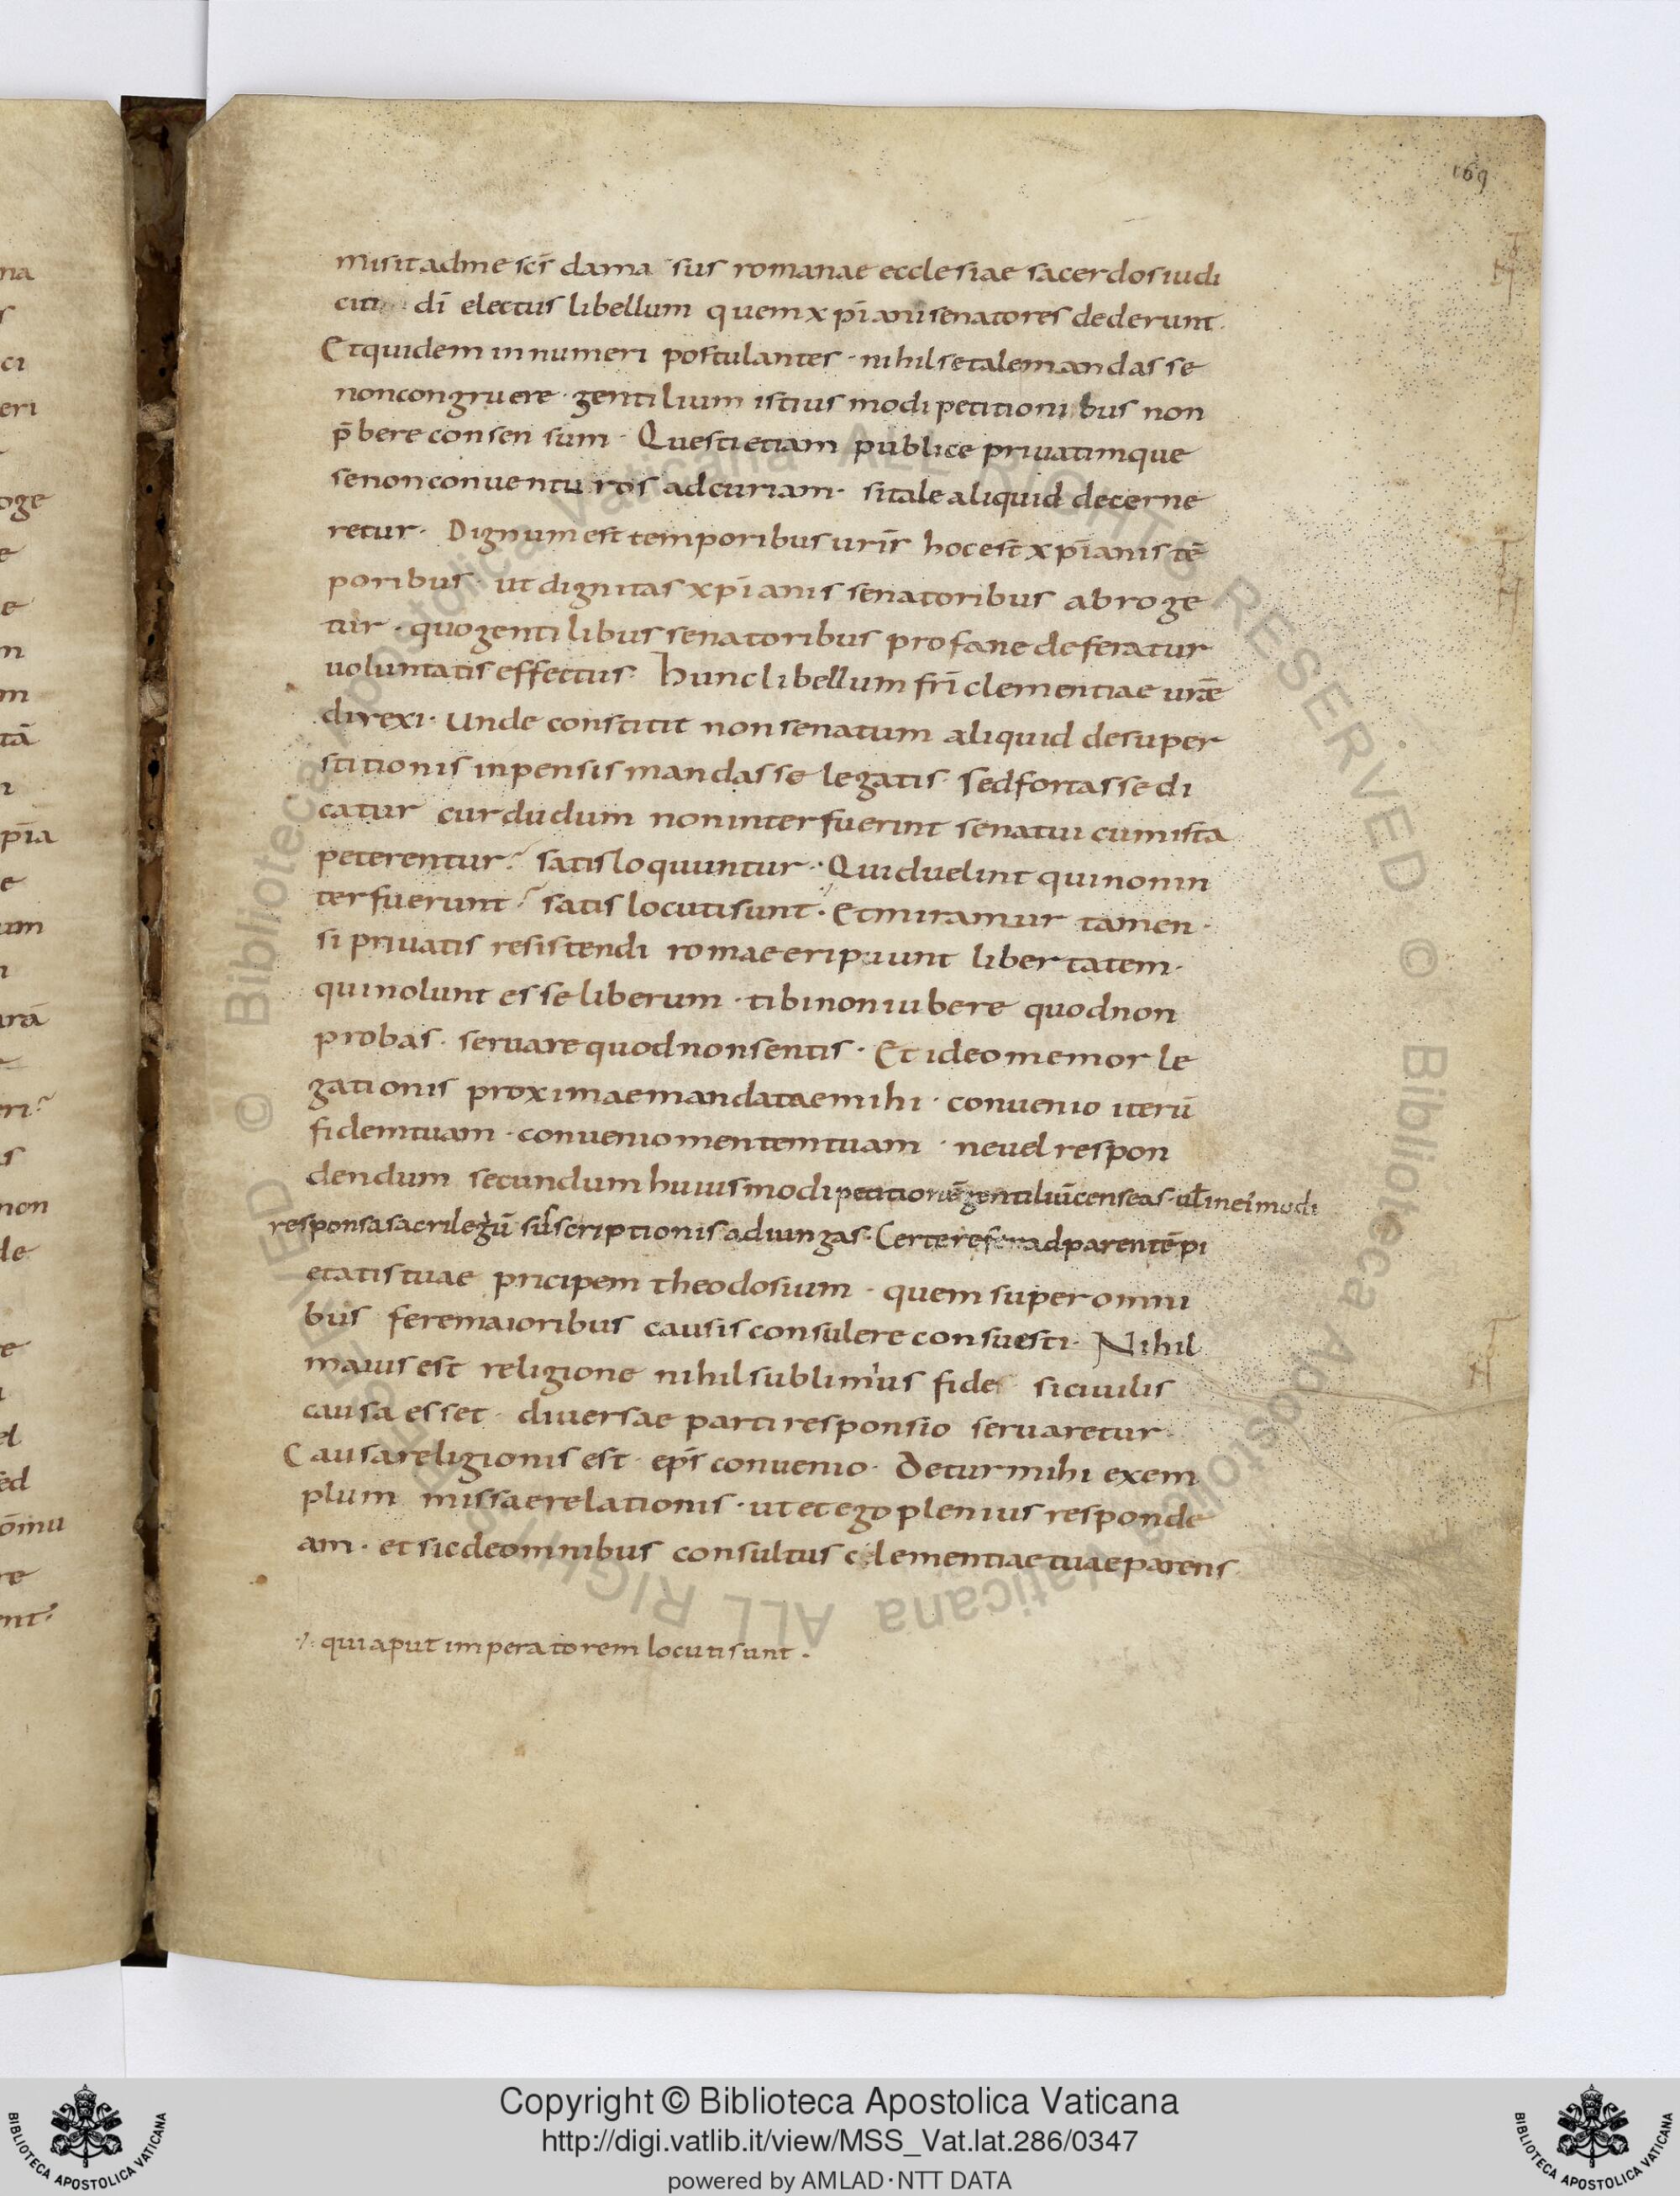 169
misit ad me scs̄ dama sus romanae ecclesiae sacerdos iudi
citi dī electus libellum quem xp̄iani senatores dederunt.
Et quidem innumeri postulantes · nihil se tale mandasse
non congruere · gentilium istius modi petitionibus non
p̄bere consensum · Questi etiam publice privatimque
se non conventuros ad curiam · si tale aliquid decerne
retur · Dignum est temporibus urīs hoc est xp̄ianis tē
poribus · ut dignitas xp̄ianis senatoribus abroge
tur · quo gentilibus senatoribus profane deferatur
voluntatis effectus · hunc libellum frī clementiae urāe
direxi · Unde constitit non senatum aliquid de super
stitionis inpensis mandasse legatis · sed fortasse di
catur cur dudum non interfuerint senatui cum ista
peterentur? satis loquuntur · Quid uelint qui non in
terfuerunt? satis locuti sunt · Et miramur tamen ·
si privatis resistendi romae eripuunt libertatem ·
qui nolunt esse liberum · tibi non iubere quod non
probas · servare quod non sentis · Et ideo memor le
gationis proximae mandatae mihi · convenio iterū
fidem tuam · convenio mentem tuam · ne vel respon
dendum secundum huiusmodi petitionē gentiliū censeas · ul̄ in ei modi
responsa sacrilegiū subscriptionis adiungas · Certe refer ad parentē pi
etatis tuae pricipem theodosium · quem super omni
bus fere maioribus causis consulere consuesti · Nihil
maius est religione nihil sublimius fide si civilis
causa esset · diversae parti responsio servaretur ·
Causa religionis est · ep̄s convenio · Detur mihi exem
plum missae relationis · ut et ego plenius responde
am · et sic de omnibus consultus clementiae tuae parens
qui aput imperatorem locuti sunt .
na
ci
eri
oge
e
e
n
m
tā
pīa
e
um
arā
non
de
e
el
ed
ōmu
re
ent
© Biblioteca Apostolica Vaticana ALL RIGHTS RESERVED © Biblioteca Apostolica Vaticana ALL RIGHTS RESERVED
Copyright © Biblioteca Apostolica Vaticana
http://digi.vatlib.it/view/MSS_Vat.lat.286/0347
powered by AMLAD·NTT DATA
BIBLIOTECA APOSTOLICA VATICANA
BIBLIOTECA APOSTOLICA VATICANA